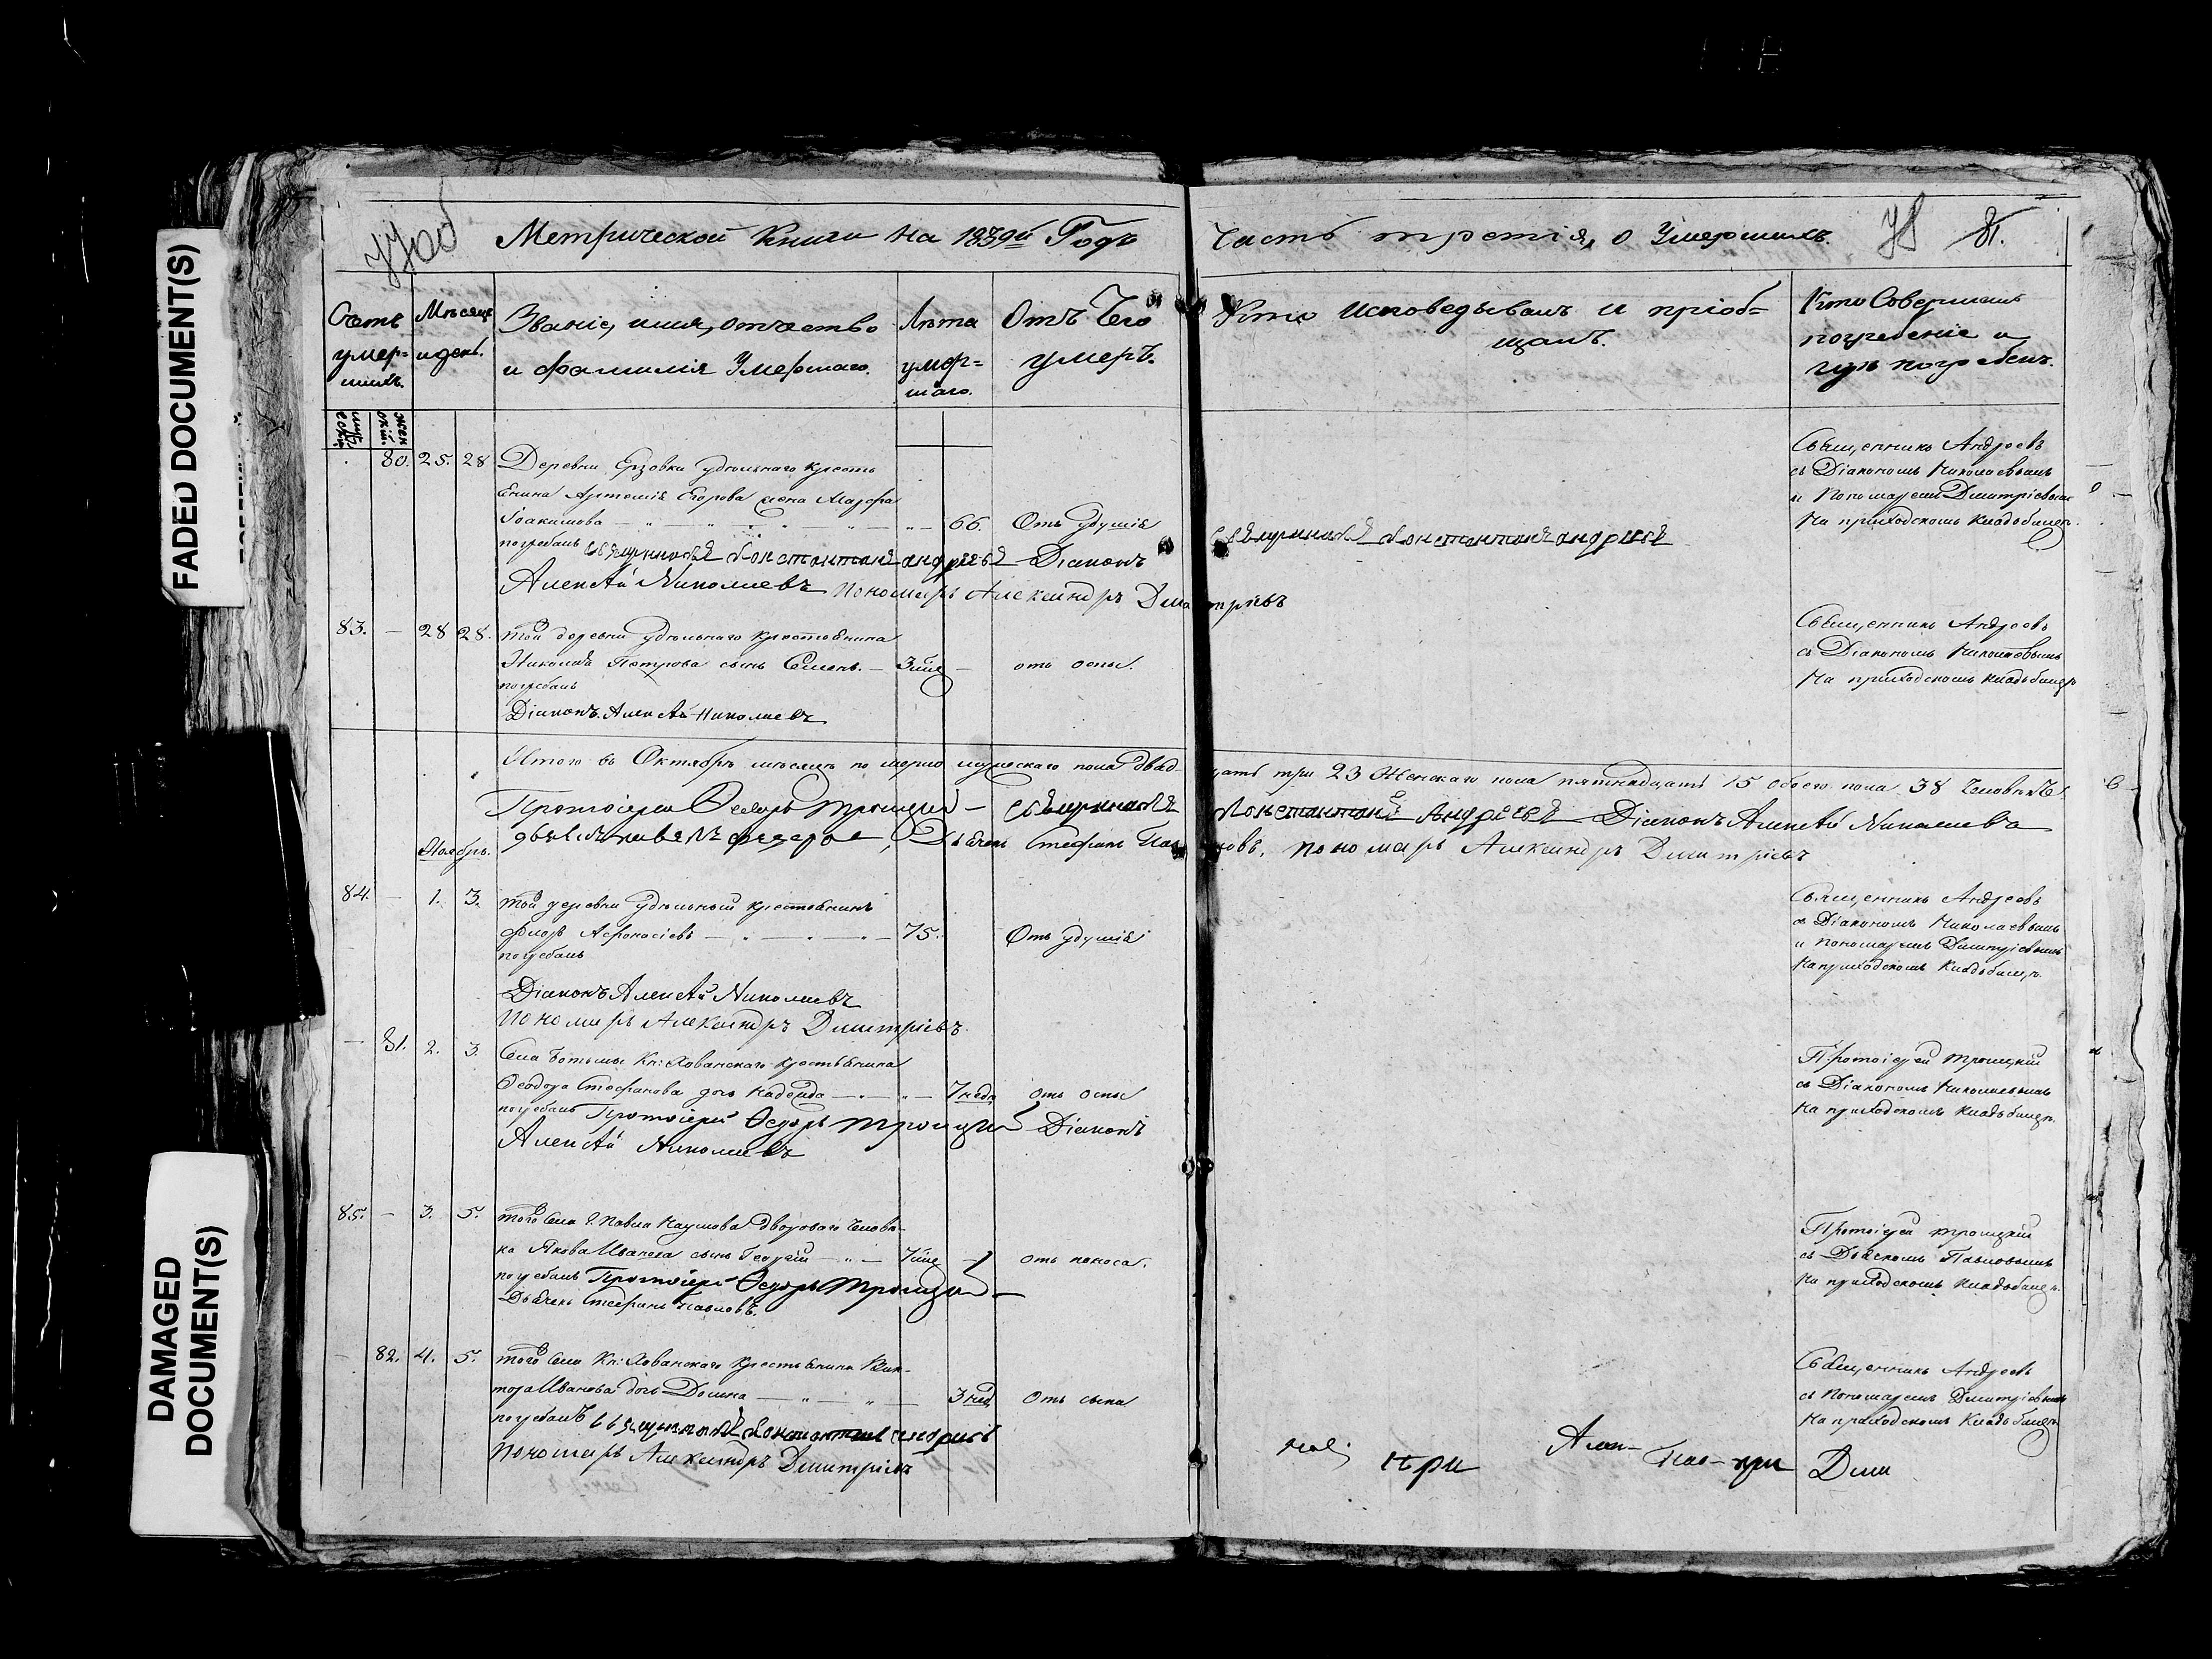 FADED DOCUMENT(S)
DAMAGED
DOCUMENT(S)
Метрической Книги на 1839й Годъ
Часть третія, о Умершихъ.
Счетъ умер=шихъ.
Мѣсяцъ и день.
Званіе, имя, отчество и фамилія Умершаго.
Лѣта умер=шаго.
Отъ Чего умеръ.
Кто Исповѣдывалъ и пріоб=щалъ.
Кто Совершалъ погребеніе и гдѣ погребенъ.
80. 25. 28 Деревни Ерзовки удѣльнаго кресть
янина Артемія Егорова жена Марфа
Іоакимова 66. Отъ удушія
погребалъ священникъ Константинъ андреевъ Діаконъ
Алексѣй Николаевъ Пономарь Александръ Дмитріевъ
священникъ Константинъ андреевъ
Священникъ Андреевъ
съ Діакономъ Николаевымъ
и Пономаремъ Дмитріевымъ
На приходскомъ кладбищѣ.
83. — 28 28. той деревни удѣльнаго крестьянина
Николая Петрова сынъ Семенъ. — 3 — отъ оспы.
погребалъ
Діаконъ Алексѣй Николаевъ
Священникъ Андреевъ
съ Діакономъ Николаевымъ
На приходскомъ кладбищѣ
Итого въ Октябрѣ мѣсяцѣ померло мужескаго пола двад-
цать три 23 Женскаго пола пятнадцать 15 обоего пола 38 Человѣкъ.
Протоіерей Ѳедоръ Троицкій — священникъ Константинъ Андреевъ Діаконъ Алексѣй Николаевъ
Дьячекъ Стефанъ Павловъ. пономарь Александръ Дмитріевъ
Ноябрь.
84. — 1. 3. той деревни удѣльный крестьянинъ
Флоръ Афонасіевъ — 75. Отъ удушія
погребалъ
Діаконъ Алексѣй Николаевъ
Пономарь Александръ Дмитріевъ.
Священникъ Андреевъ
съ Діакономъ Николаевымъ
и пономаремъ Дмитріевымъ
На приходскомъ кладбищѣ.
— 81. 2. 3. Села Ботьмы Кн: Хованскаго крестьянина
Ѳеодора Стефанова дочь Надежда — 7 недѣ отъ оспы
погребалъ Протоіерей Ѳедоръ Троицкій Діаконъ
Алексѣй Николаевъ
Протоіерей Троицкій
съ Діакономъ Николаевымъ
На приходскомъ кладбищѣ.
85. — 3. 5. того Села Г. Павла Наумова двороваго Человѣ-
ка Якова Иванова сынъ Георгій — 7 — отъ поноса.
погребалъ Протоіерей Ѳедоръ Троицкій —
Дьячекъ Стефанъ Павловъ.
Протоіерей Троицкій
съ Дьячкомъ Павловымъ
На приходскомъ кладбищѣ.
— 82. 4. 5. того Села Кн: Хованскаго крестьянина Вик-
тора Иванова дочь Домна — 3 нед Отъ сыпи
погребалъ священникъ Константинъ андреевъ
Пономарь Александръ Дмитріевъ
Священникъ Андреевъ
съ Пономаремъ Дмитріевымъ
На приходскомъ кладбищѣ
Алек- Пав- Дми